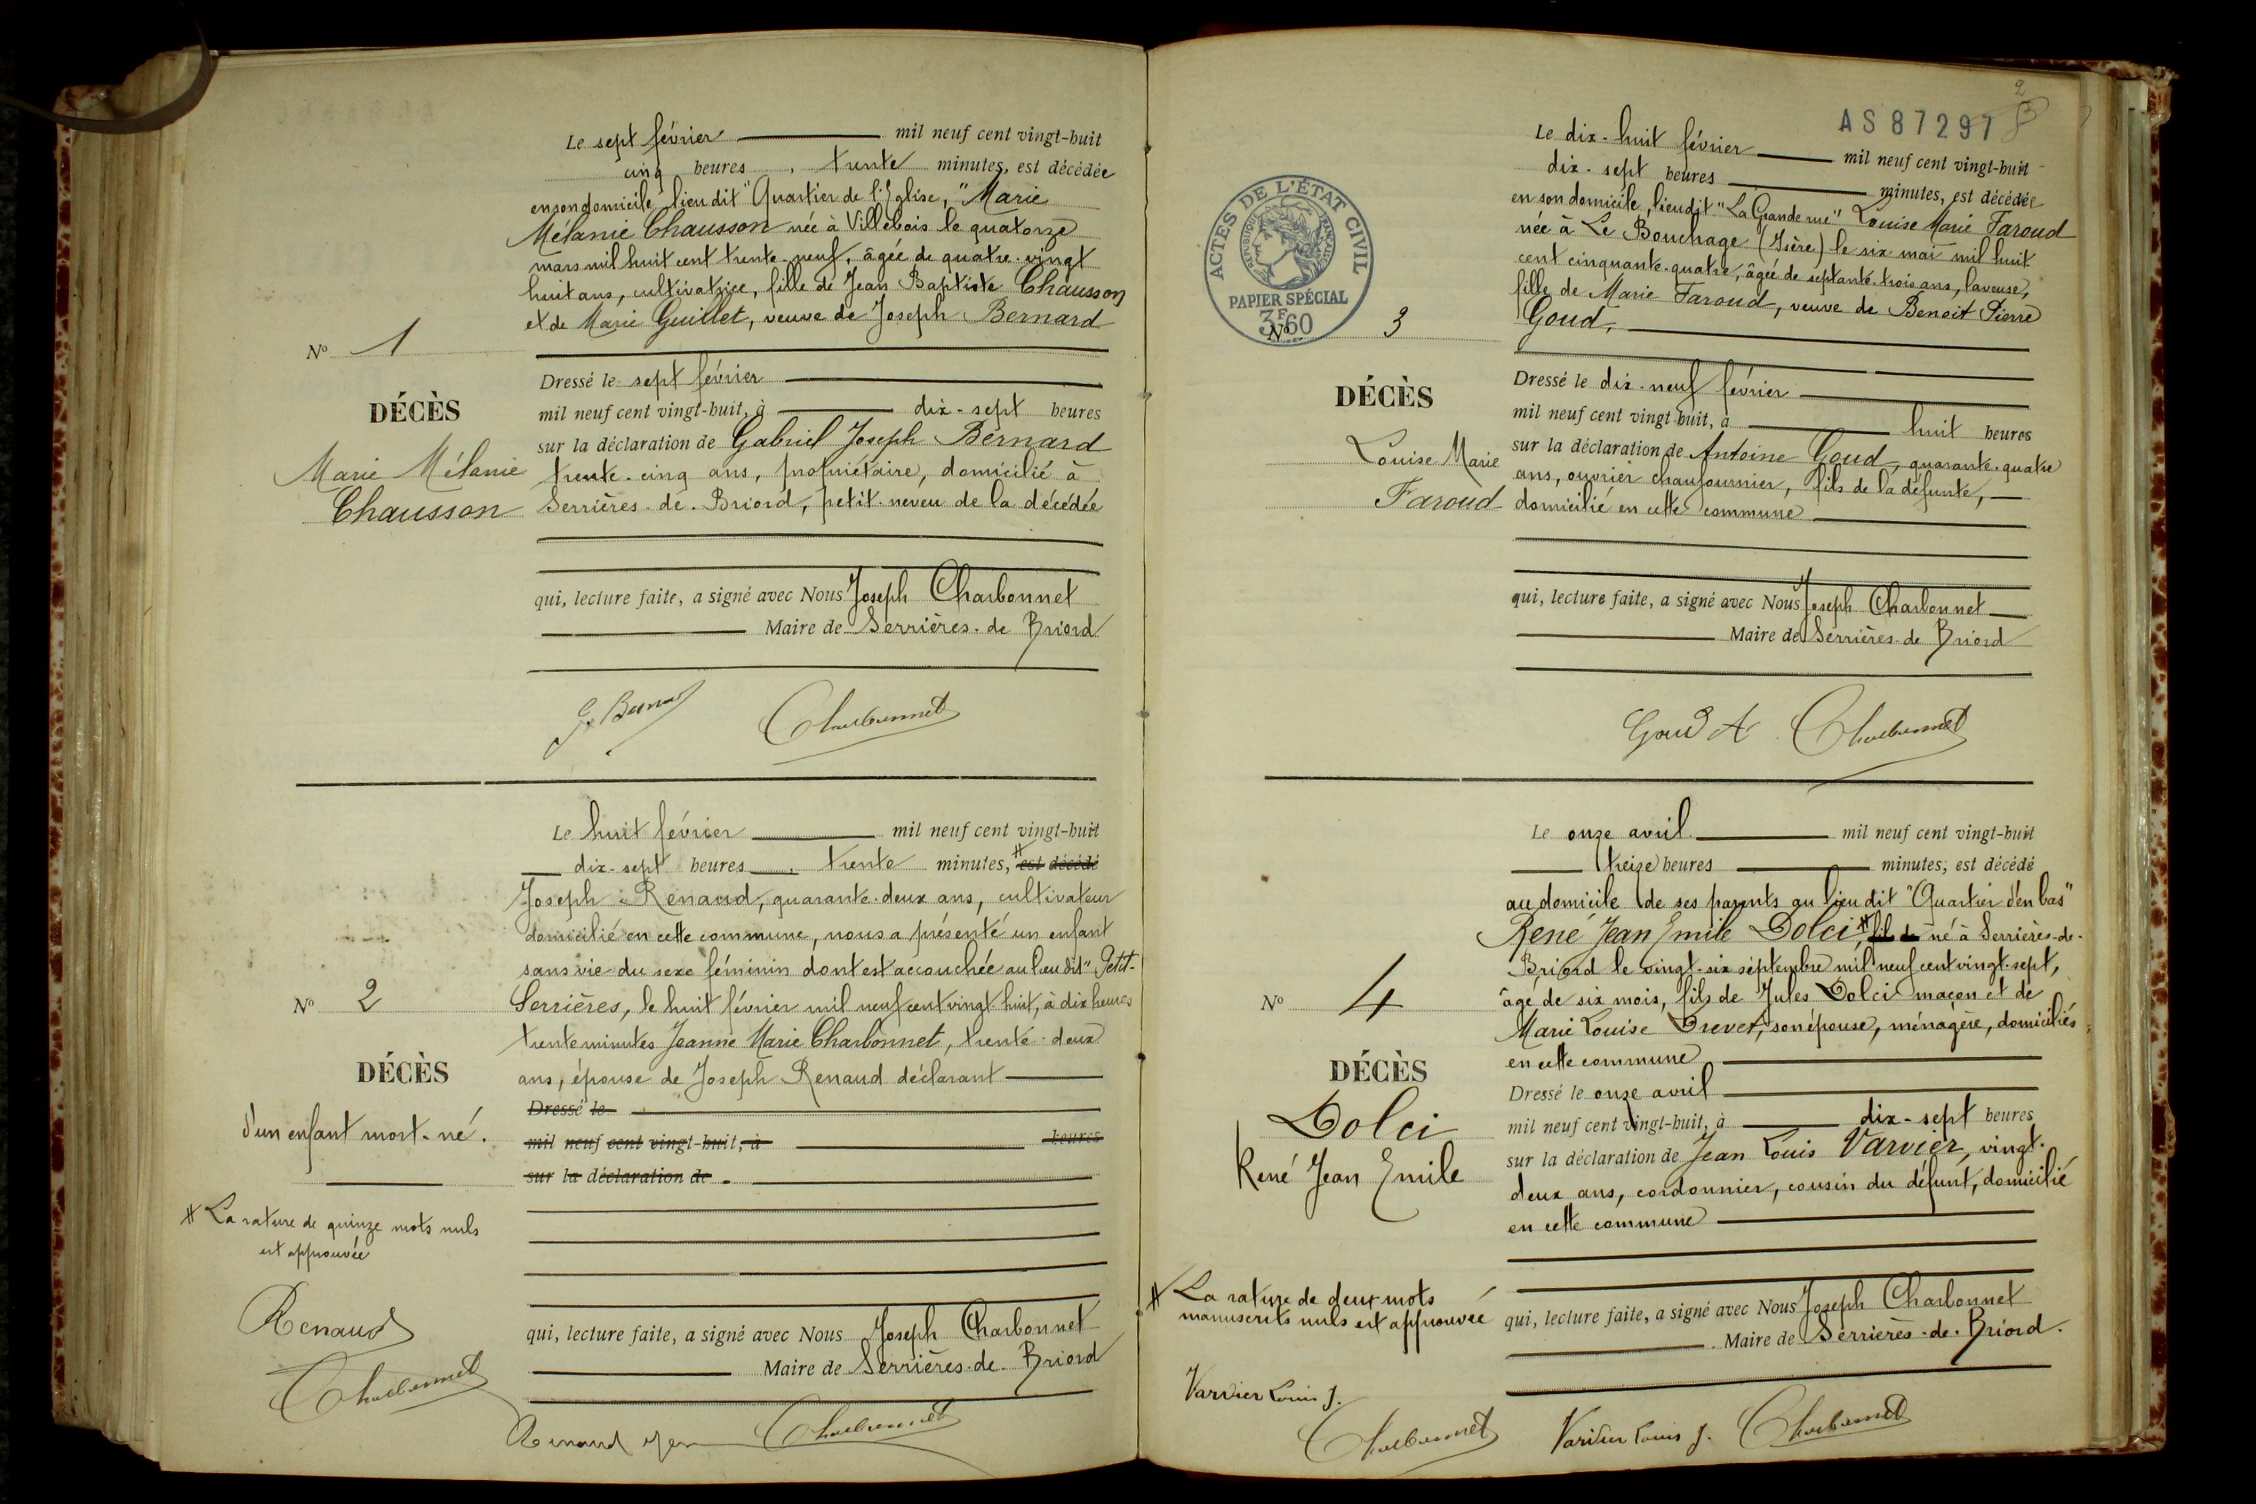 Le sept février mil neuf cent vingt-huit
cinq heures, trente minutes, est décédée
en son domicile, lieu dit "Quartier de l'Eglise," Marie
Mélanie Chausson née à Villebois le quatorze
mars mil huit cent trente-neuf, âgée de quatre-vingt
huit ans, cultivatrice, fille de Jean Baptiste Chausson
et de Marie Guillet, veuve de Joseph Bernard
No 1
Dressé le sept février
DÉCÈS
mil neuf cent vingt-huit, à dix-sept heures
sur la déclaration de Gabriel Joseph Bernard
Marie Mélanie
trente-cinq ans, propriétaire, domicilié à
Chausson
Serrières-de-Briord, petit-neveu de la décédée
qui, lecture faite, a signé avec Nous Joseph Charbonnet
Maire de Serrières-de-Briord
G. Bernard Charbonnet
Le huit février mil neuf cent vingt-huit
dix-sept heures, trente minutes, # est décédé
Joseph Renaud, quarante-deux ans, cultivateur
domicilié en cette commune, nous a présenté un enfant
sans vie du sexe féminin dont est accouchée au lieu dit "Petit-
No 2
Serrières, le huit février mil neuf cent vingt-huit, à dix heures
trente minutes Jeanne Marie Charbonnet, trente-deux
DÉCÈS
ans, épouse de Joseph Renaud déclarant
Dressé le
d'un enfant mort-né.
mil neuf cent vingt-huit, à heures
sur la déclaration de
# La rature de quinze mots nuls
est approuvée
Renaud
Charbonnet
qui, lecture faite, a signé avec Nous Joseph Charbonnet
Maire de Serrières-de-Briord
Renaud Charbonnet
2
AS 87297
ACTES DE L'ÉTAT CIVIL
RÉPUBLIQUE FRANÇAISE
PAPIER SPÉCIAL
3F60
Le dix-huit février mil neuf cent vingt-huit
dix-sept heures minutes, est décédée
en son domicile, lieu dit "La Grande rue" Louise Marie Faroud
née à Le Bouchage (Isère) le six mai mil huit
cent cinquante-quatre, âgée de septante-trois ans, laveuse,
fille de Marie Faroud, veuve de Benoit Pierre
Goud,
No 3
Dressé le dix-neuf février
DÉCÈS
mil neuf cent vingt-huit, à huit heures
Louise Marie
sur la déclaration de Antoine Goud, quarante-quatre
ans, ouvrier chaufournier, fils de la défunte,
Faroud
domicilié en cette commune
qui, lecture faite, a signé avec Nous Joseph Charbonnet
Maire de Serrières-de Briord
Goud A Charbonnet
Le onze avril mil neuf cent vingt-huit
treize heures minutes, est décédé
au domicile de ses parents au lieu dit "Quartier d'en bas"
René Jean Emile Dolci, # fils de né à Serrières-de-
Briord le vingt-six septembre mil neuf cent vingt-sept,
No 4
âgé de six mois, fils de Jules Dolci maçon et de
Marie Louise Drevet, son épouse, ménagère, domiciliés
en cette commune
DÉCÈS
Dressé le onze avril
Dolci
mil neuf cent vingt-huit, à dix-sept heures
René Jean Emile
sur la déclaration de Jean Louis Varvier, vingt-
deux ans, cordonnier, cousin du défunt, domicilié
en cette commune
# La rature de deux mots
manuscrits nuls est approuvée
qui, lecture faite, a signé avec Nous Joseph Charbonnet
Maire de Serrières-de-Briord.
Varvier Louis J.
Charbonnet
Varvier Louis J. Charbonnet